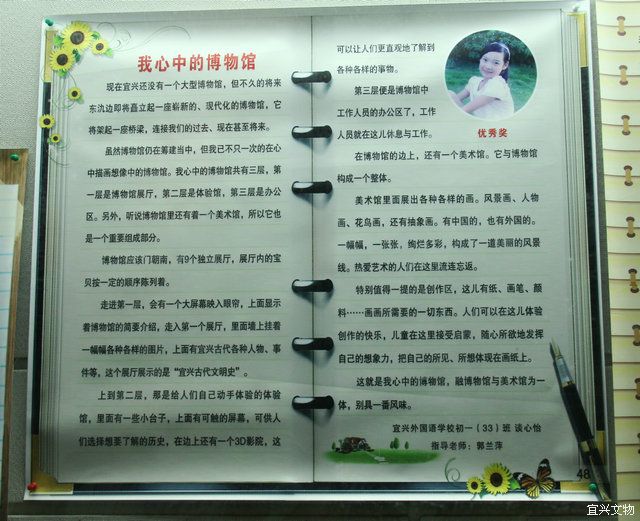 我心中的博物馆
现在宜兴还没有一个大型博物馆，但不久的将来
东氿边即将矗立起一座崭新的、现代化的博物馆，它
将架起一座桥梁，连接我们的过去、现在甚至将来。
虽然博物馆仍在筹建当中，但我已不只一次的在心
中描画想像中的博物馆。我心中的博物馆共有三层，第
一层是博物馆展厅，第二层是体验馆，第三层是办公
区。另外，听说博物馆里还有着一个美术馆，所以它也
是一个重要组成部分。
博物馆应该门朝南，有9个独立展厅，展厅内的宝
贝按一定的顺序陈列着。
走进第一层，会有一个大屏幕映入眼帘，上面显示
着博物馆的简要介绍，走入第一个展厅，里面墙上挂着
一幅幅各种各样的图片，上面有宜兴古代各种人物、事
件等，这个展厅展示的是“宜兴古代文明史”。
上到第二层，那是给人们自己动手体验的体验
馆，里面有一些小台子，上面有可触的屏幕，可供人
们选择想要了解的历史，在边上还有一个3D影院，这
可以让人们更直观地了解到
各种各样的事物。
第三层便是博物馆中
工作人员的办公区了，工作
人员就在这儿休息与工作。
优秀奖
在博物馆的边上，还有一个美术馆。它与博物馆
构成一个整体。
美术馆里面展出各种各样的画。风景画、人物
画、花鸟画，还有抽象画。有中国的，也有外国的。
一幅幅，一张张，绚烂多彩，构成了一道美丽的风景
线。热爱艺术的人们在这里流连忘返。
特别值得一提的是创作区，这儿有纸、画笔、颜
料……画画所需要的一切东西。人们可以在这儿体验
创作的快乐，儿童在这里接受启蒙，随心所欲地发挥
自己的想象力，把自己的所见、所想体现在画纸上。
这就是我心中的博物馆，融博物馆与美术馆为一
体，别具一番风味。
宜兴外国语学校初一（33）班 谈心怡
指导老师：郭兰萍
48
宜兴文物